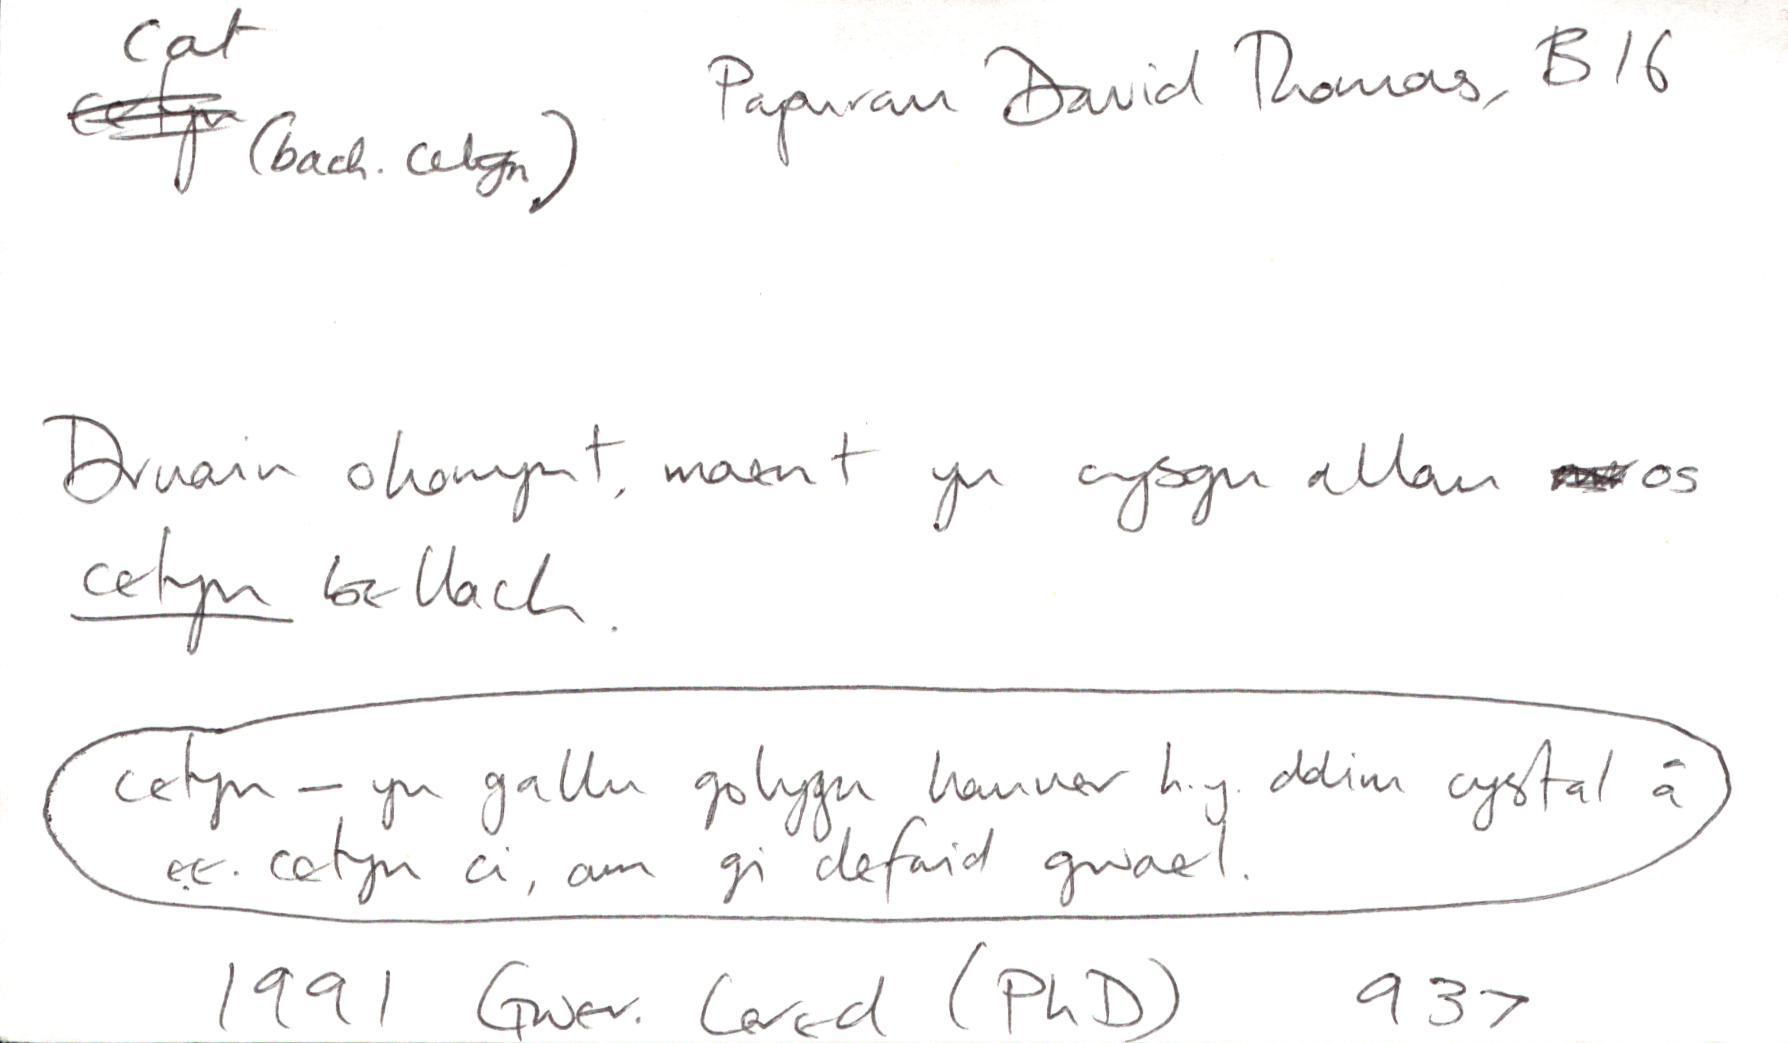 cat
Papurau David Thomas, B16
(bach. cetyn)
Druain ohonynt, maent yn cysgu allan os
cetyn bellach.
cetyn – yn gallu golygu hanner h.y. ddim cystal â
e.e. cetyn ci, am gi defaid gwael.
1991 Gwer. Cered (PhD) 937